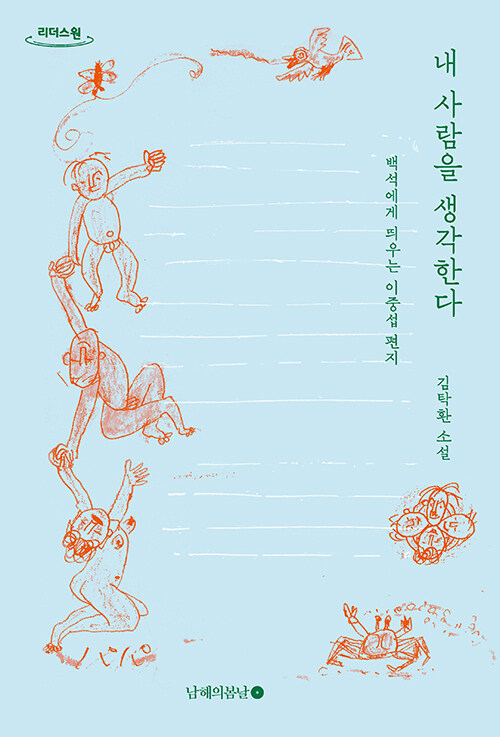 리더스원
내 사람을 생각한다
백석에게 띄우는 이중섭 편지
김탁환 소설
남해의봄날